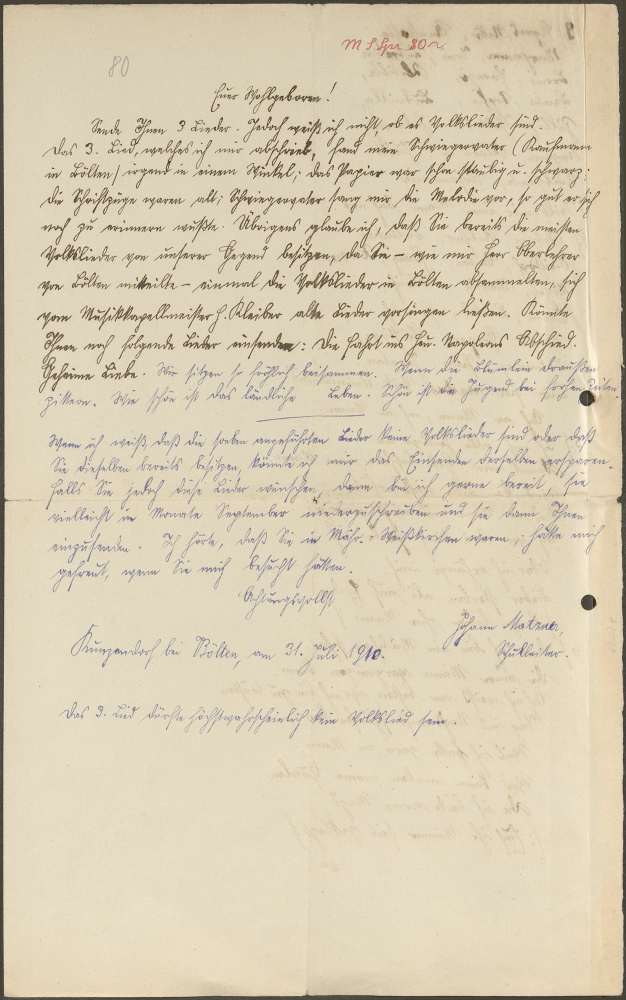 80
Euer Wohlgeboren!
Sende Ihnen 3 Lieder. Jedoch weiß ich nicht, ob es Volkslieder sind.
Das 3. Lied, welches ich mir abschrieb, fand mein Schwiegervater (Kaufmann
in Bölten) irgend in einem Winkel; das Papier war schon staubig u. schwarz;
die Schriftzüge waren alt; Schwiegervater sang mir die Melodie vor, so gut er sich
noch zu erinnern wußte. Übrigens glaube ich, daß Sie bereits die meisten
Volkslieder von unserer Gegend besitzen, da Sie – wie mir Herr Oberlehrer
von Bölten mitteilte – einmal die Volkslieder in Bölten absammelten, sich
vom Musikkapellmeister H. Kleiber alte Lieder vorsingen ließen. Könnte
Ihnen noch folgende Lieder einsenden: Die Fahrt ins Heu. Napoleons Abschied.
Geheime Liebe. Wir sitzen so fröhlich beisammen. Wenn die Blümlein draußen
zittern. Wie schön ist das ländliche Leben. Schön ist die Jugend bei frohen Zeiten.
Wenn ich weiß, daß die soeben angeführten Lieder keine Volkslieder sind oder daß
Sie dieselben bereits besitzen, könnte ich mir das Einsenden derselben ersparen.
Falls Sie jedoch diese Lieder wünschen, dann bin ich gerne bereit, sie
vielleicht im Monate September niederzuschreiben und sie dann Ihnen
einzusenden. Ich hörte, daß Sie in Mähr.-Weißkirchen waren; hätte mich
gefreut, wenn Sie mich besucht hätten.
Achtungsvollst
Johann Matzner,
Kunzendorf bei Bölten, am 31. Juli 1910.
Schulleiter.
Das 3. Lied dürfte höchstwahrscheinlich kein Volkslied sein.